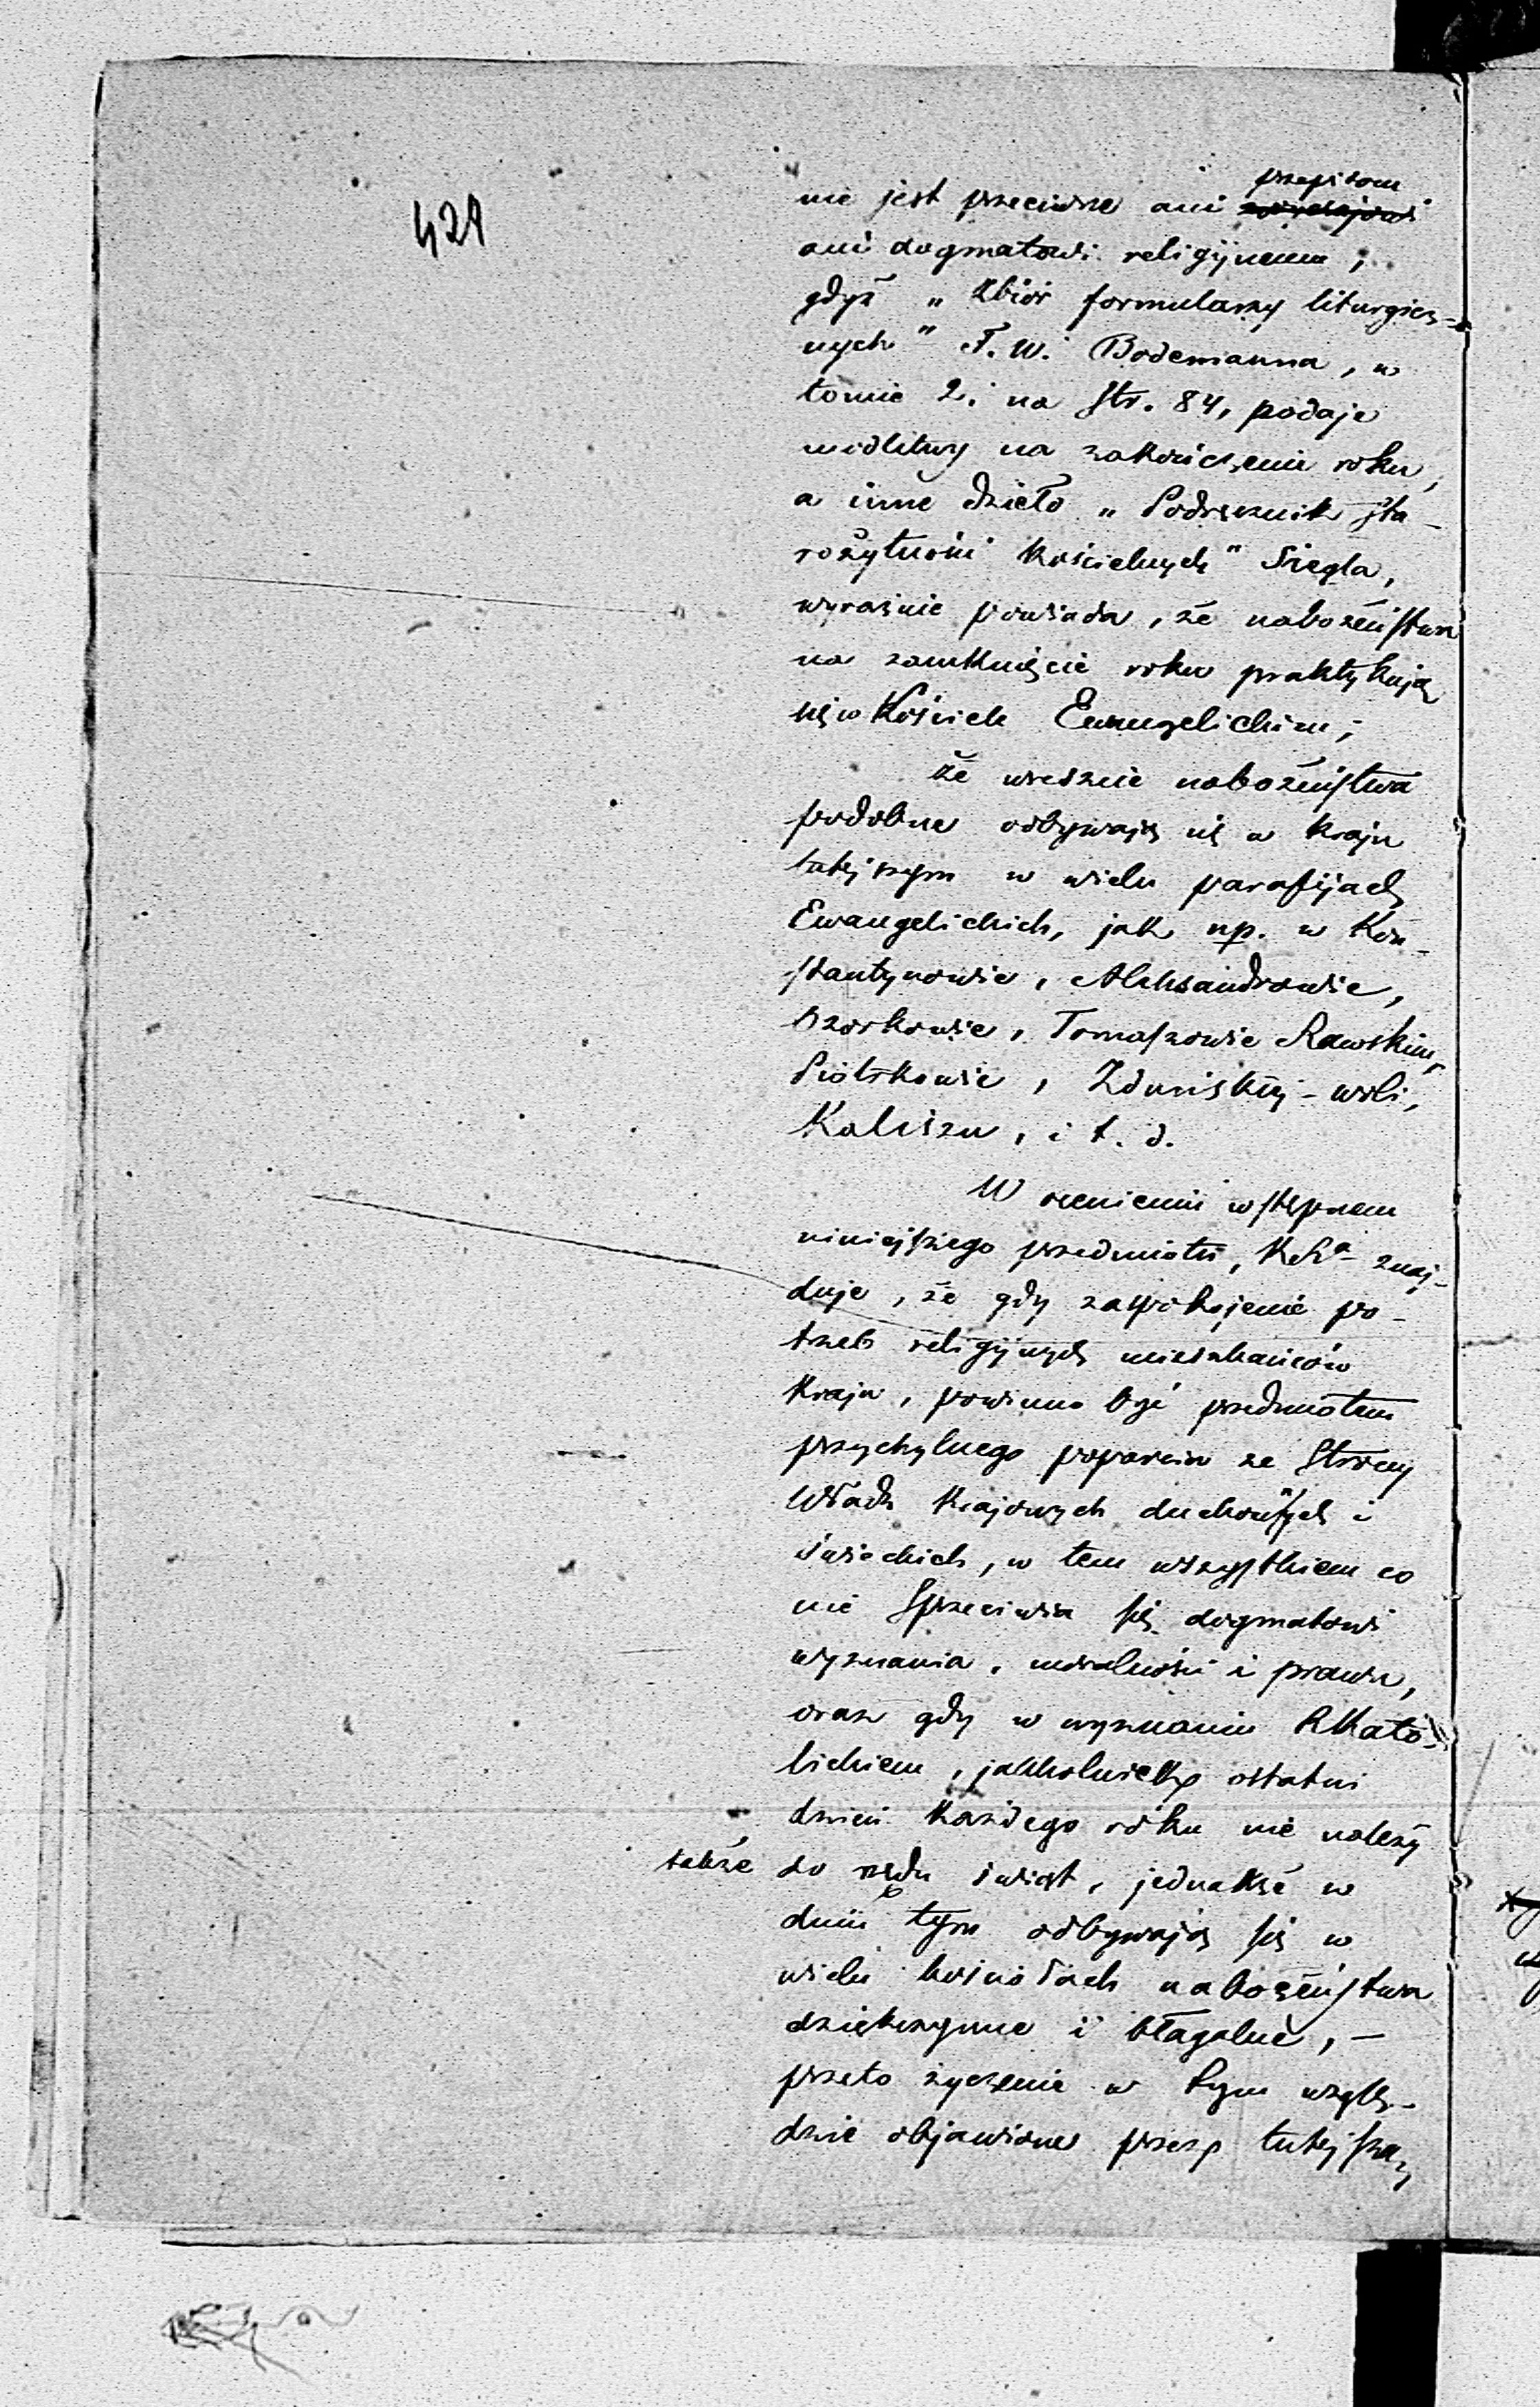 429
przepisom
nie jest przeciwne ani zwyczajowi
ani dogmatowi religijnemu ;
gdyż „ Zbiór formularzy liturgicz-
nych " F. W. Bodemanna , w
tomie 2. na str. 84, podaje
modlitwy na zakończenie roku ,
a inne dzieło „ Podręcznik sta-
rożytności kościelnych " Siegla,
wyraźnie powiada , że nabożeństwa
na zamknięcie roku praktykują
się w Kościele Ewangelickim ;
że wreszcie nabożeństwa
podobne odbywają się w kraju
tutejszym w wielu parafijach
Ewangelickich, jak np. w Kon-
stantynowie , Aleksandrowie ,
Ozorkowie , Tomaszowie Rawskim,
Piotrkowie , Zduńskiej-woli ,
Kaliszu , i t. d.
W ocenieniu wstępnem
niniejszego przedmiotu , znaj-
duje , że gdy zaspokojenie po-
trzeb religijnych mieszkańców
Kraju , powinno być przedmiotem
przychylnego poparcia ze strony
Władz Krajowych duchownych i
świeckich , w tem wszystkiem co
nie sprzeciwia się dogmatowi
wyznania , moralności i prawu ,
oraz gdy w wyznaniu RKato-
lickiem , jakkolwiek ostatni
dzień każdego roku nie należy
także do rzędu świąt , jednakże w
dniu tym odbywają się w
wielu kościołach nabożeństwa
dziękczynne i błagalne , —
przeto życzenie w tym wzglę-
dzie objawione przez tutejszą